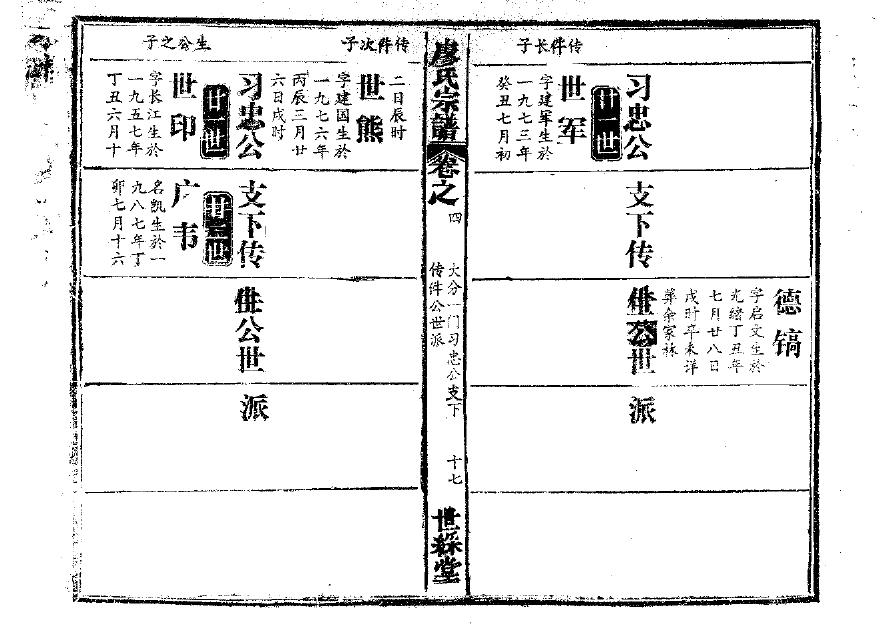 德镐
字启文生於
光绪丁丑年
七月廿八日
戌时卒未详
葬余家林
习忠公支下传公世派
廿一世
传件长子
世军
字建军生於
一九七三年
癸丑七月初
廖氏宗譜卷之四
大分一门习忠公支下
传件公世派
十七
世綵堂
二日辰时
传件次子
世熊
字建国生於
一九七六年
丙辰三月廿
六日戌时
习忠公支下传公世派
廿一世
生公之子
世印
字长江生於
一九五七年
丁丑六月十
廿二世
广韦
名凯生於一
九八七年丁
卯七月十六